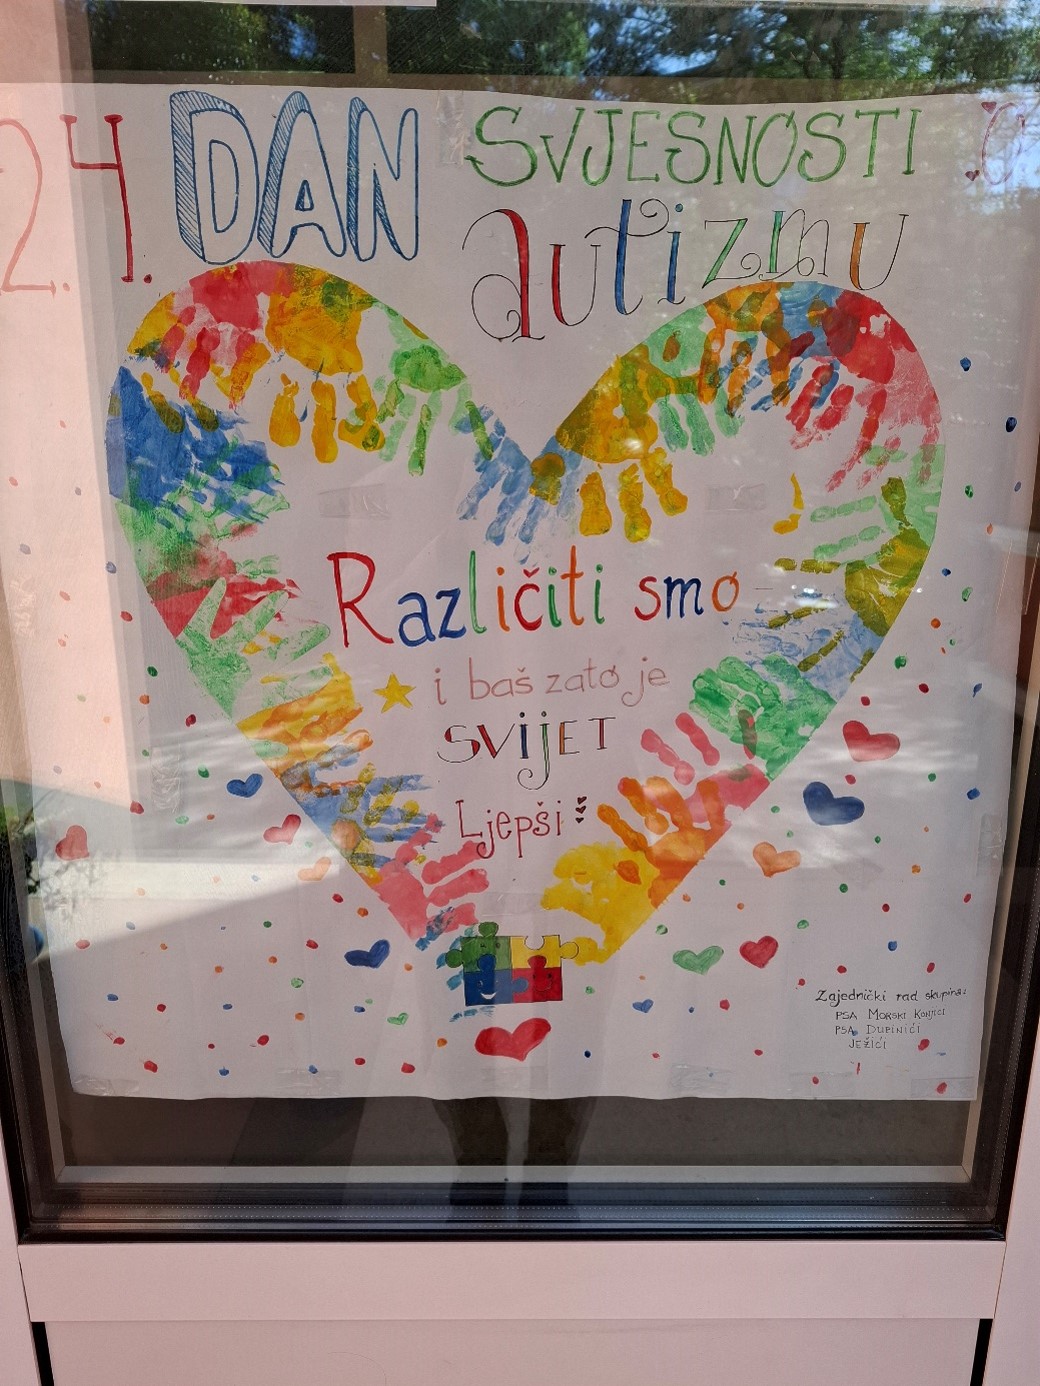 2.4. DAN SVJESNOSTI
autizmu
Različiti smo
i baš zato je
SVIJET
Ljepši
Zajednički rad skupina:
PSA MORSKI KONJICI
PSA DUPINIĆI
JEŽIĆI